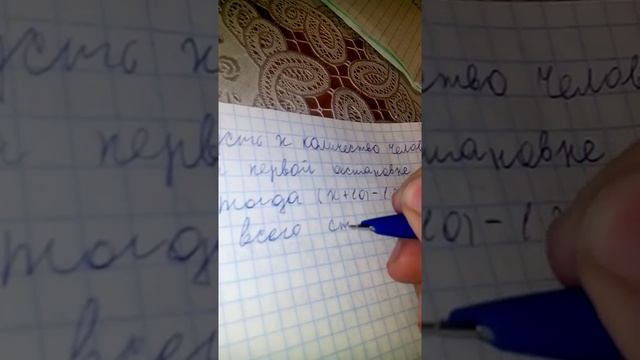 усть х количество челов
первой остановке
тогда (х+10)-(
всего ст